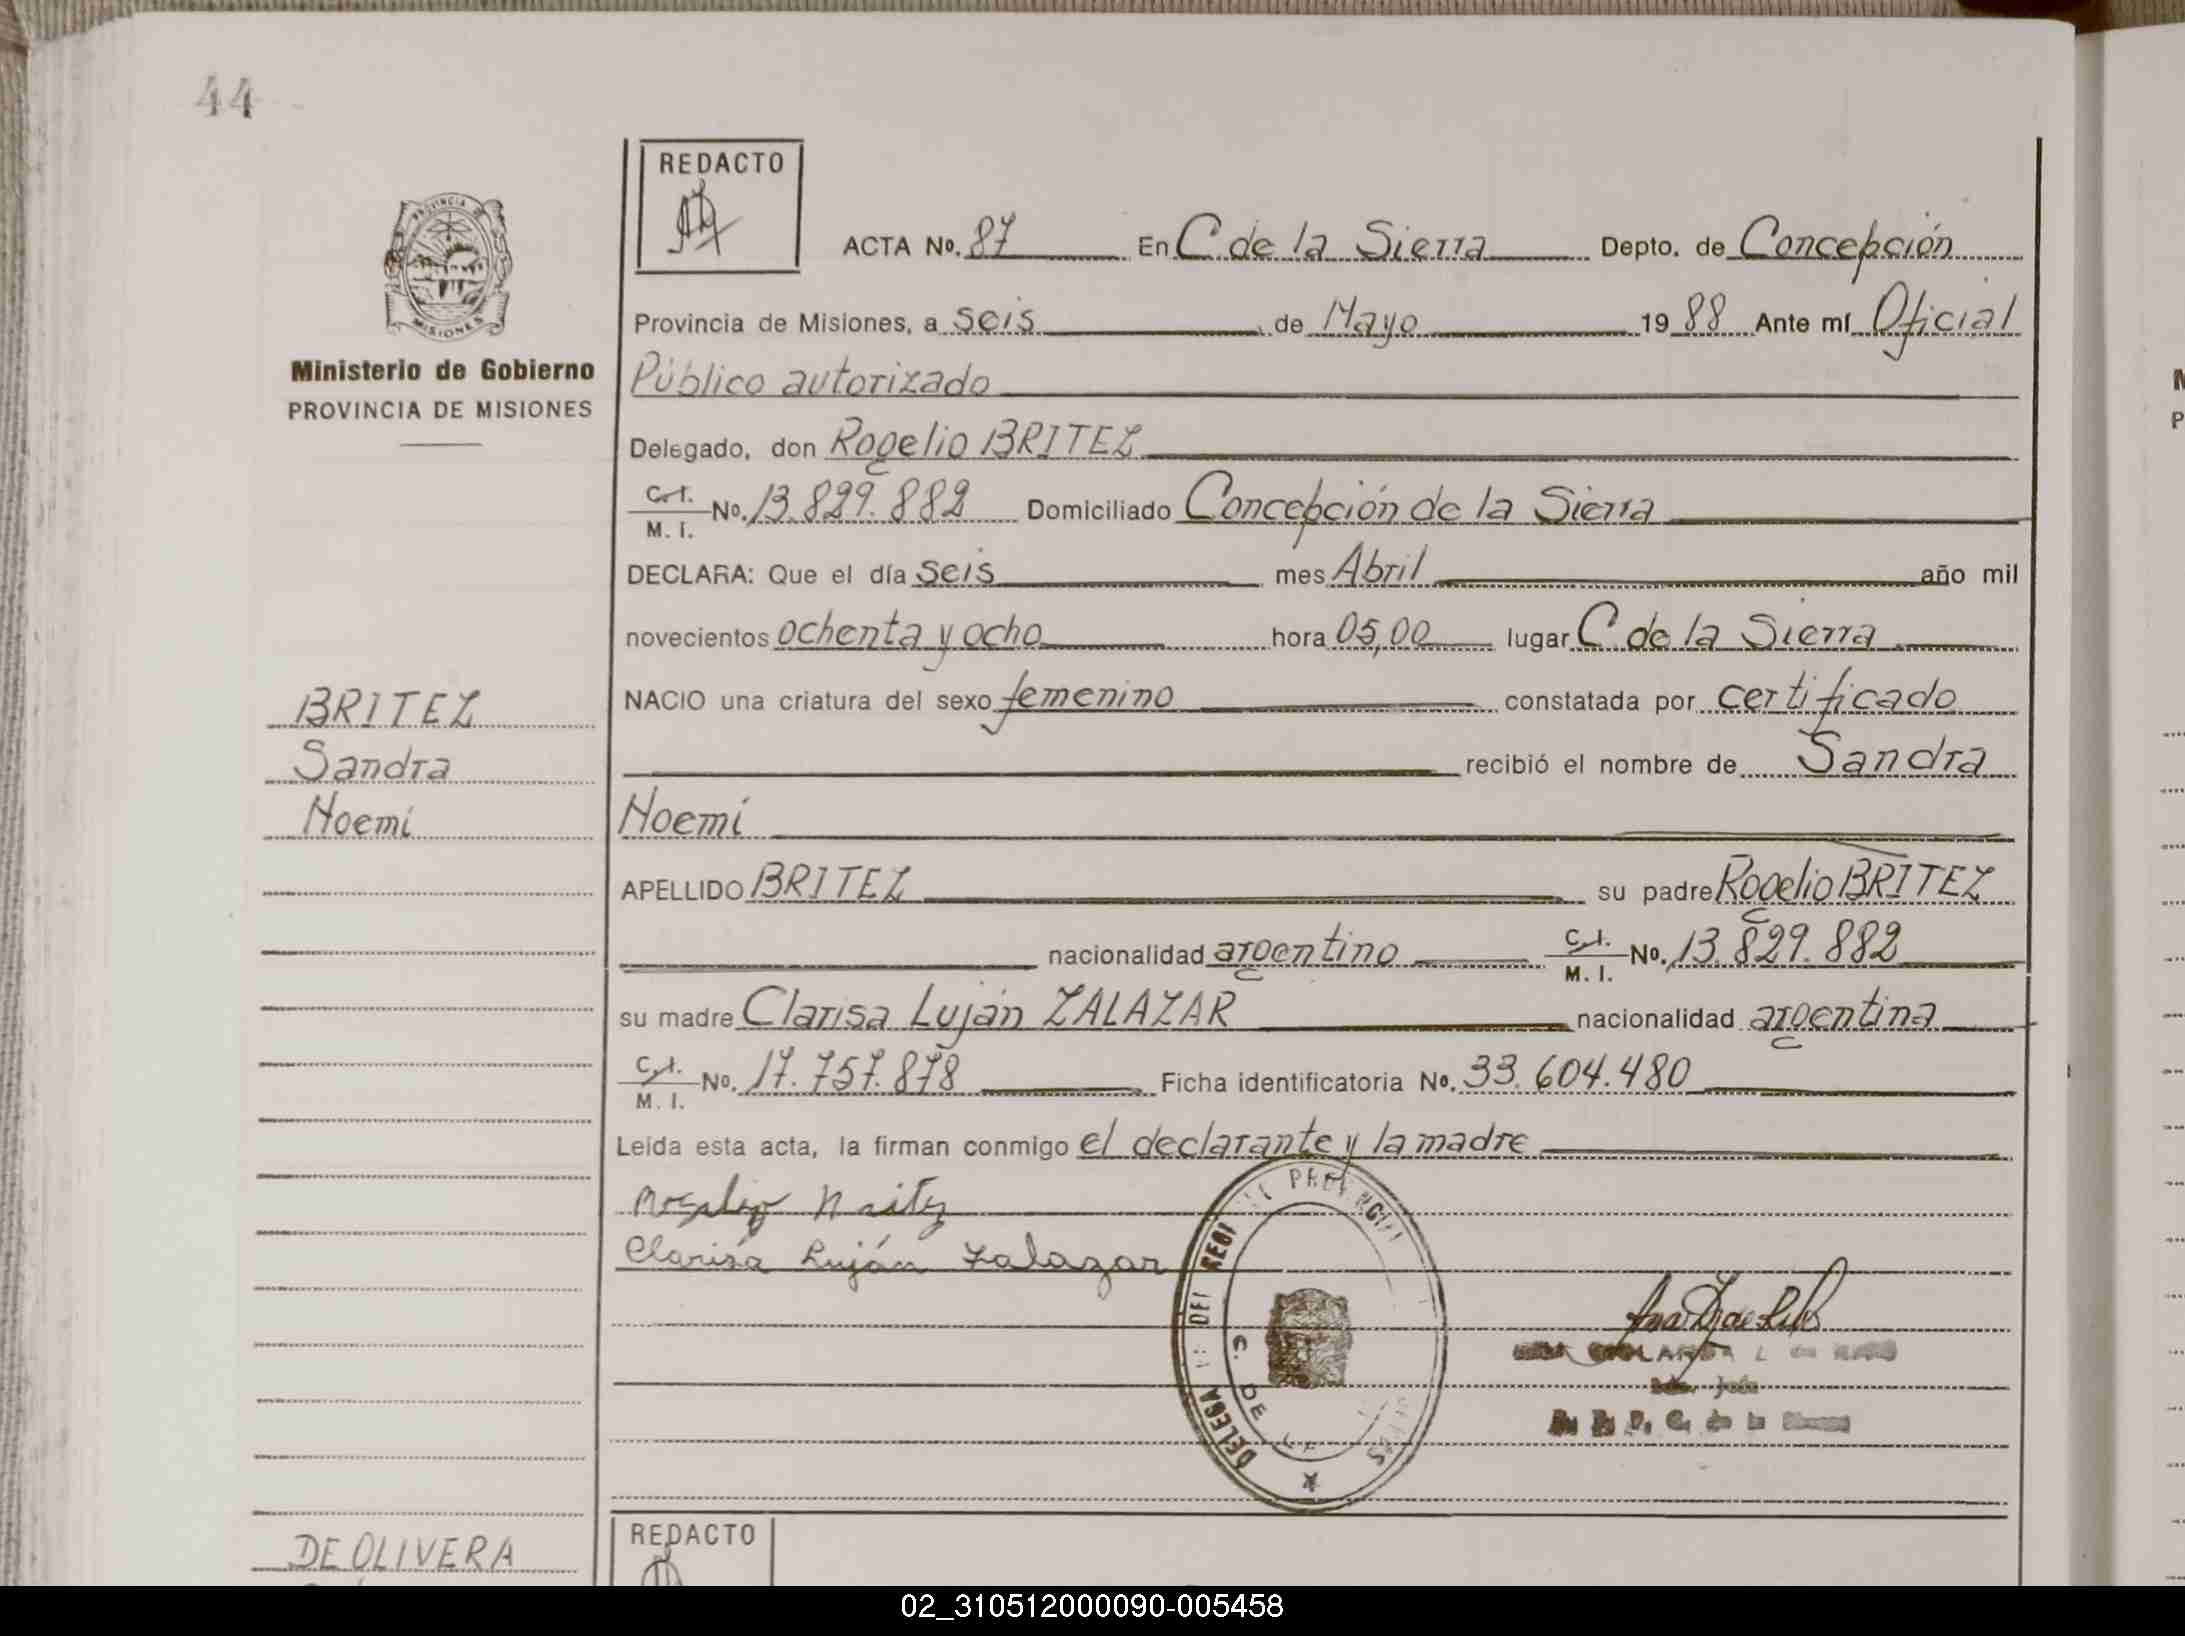 44
REDACTO
PROVINCIA DE
MISIONES
Ministerio de Gobierno
PROVINCIA DE MISIONES
ACTA No. 87 En C. de la Sierra Depto. de Concepción
Provincia de Misiones, a seis de Mayo 1988 Ante mí Oficial
Público autorizado
Delegado, don Rogelio BRITEZ
C. I.
M. I. No. 13.829.882 Domiciliado Concepción de la Sierra
DECLARA: Que el día seis mes Abril año mil
novecientos ochenta y ocho hora 05,00 lugar C. de la Sierra
NACIO una criatura del sexo femenino constatada por certificado
recibió el nombre de Sandra
Noemí
APELLIDO BRITEZ su padre Rogelio BRITEZ
nacionalidad argentino C. I. M. I. No. 13.829.882
su madre Clarisa Luján ZALAZAR nacionalidad argentina
C. I. M. I. No. 17.757.878 Ficha identificatoria No. 33.604.480
Leída esta acta, la firman conmigo el declarante y la madre
Clarisa Luján Zalazar
BRITEZ
Sandra
Noemí
C. DE
C. de la Sierra
DE OLIVERA
REDACTO
02_310512000090-005458